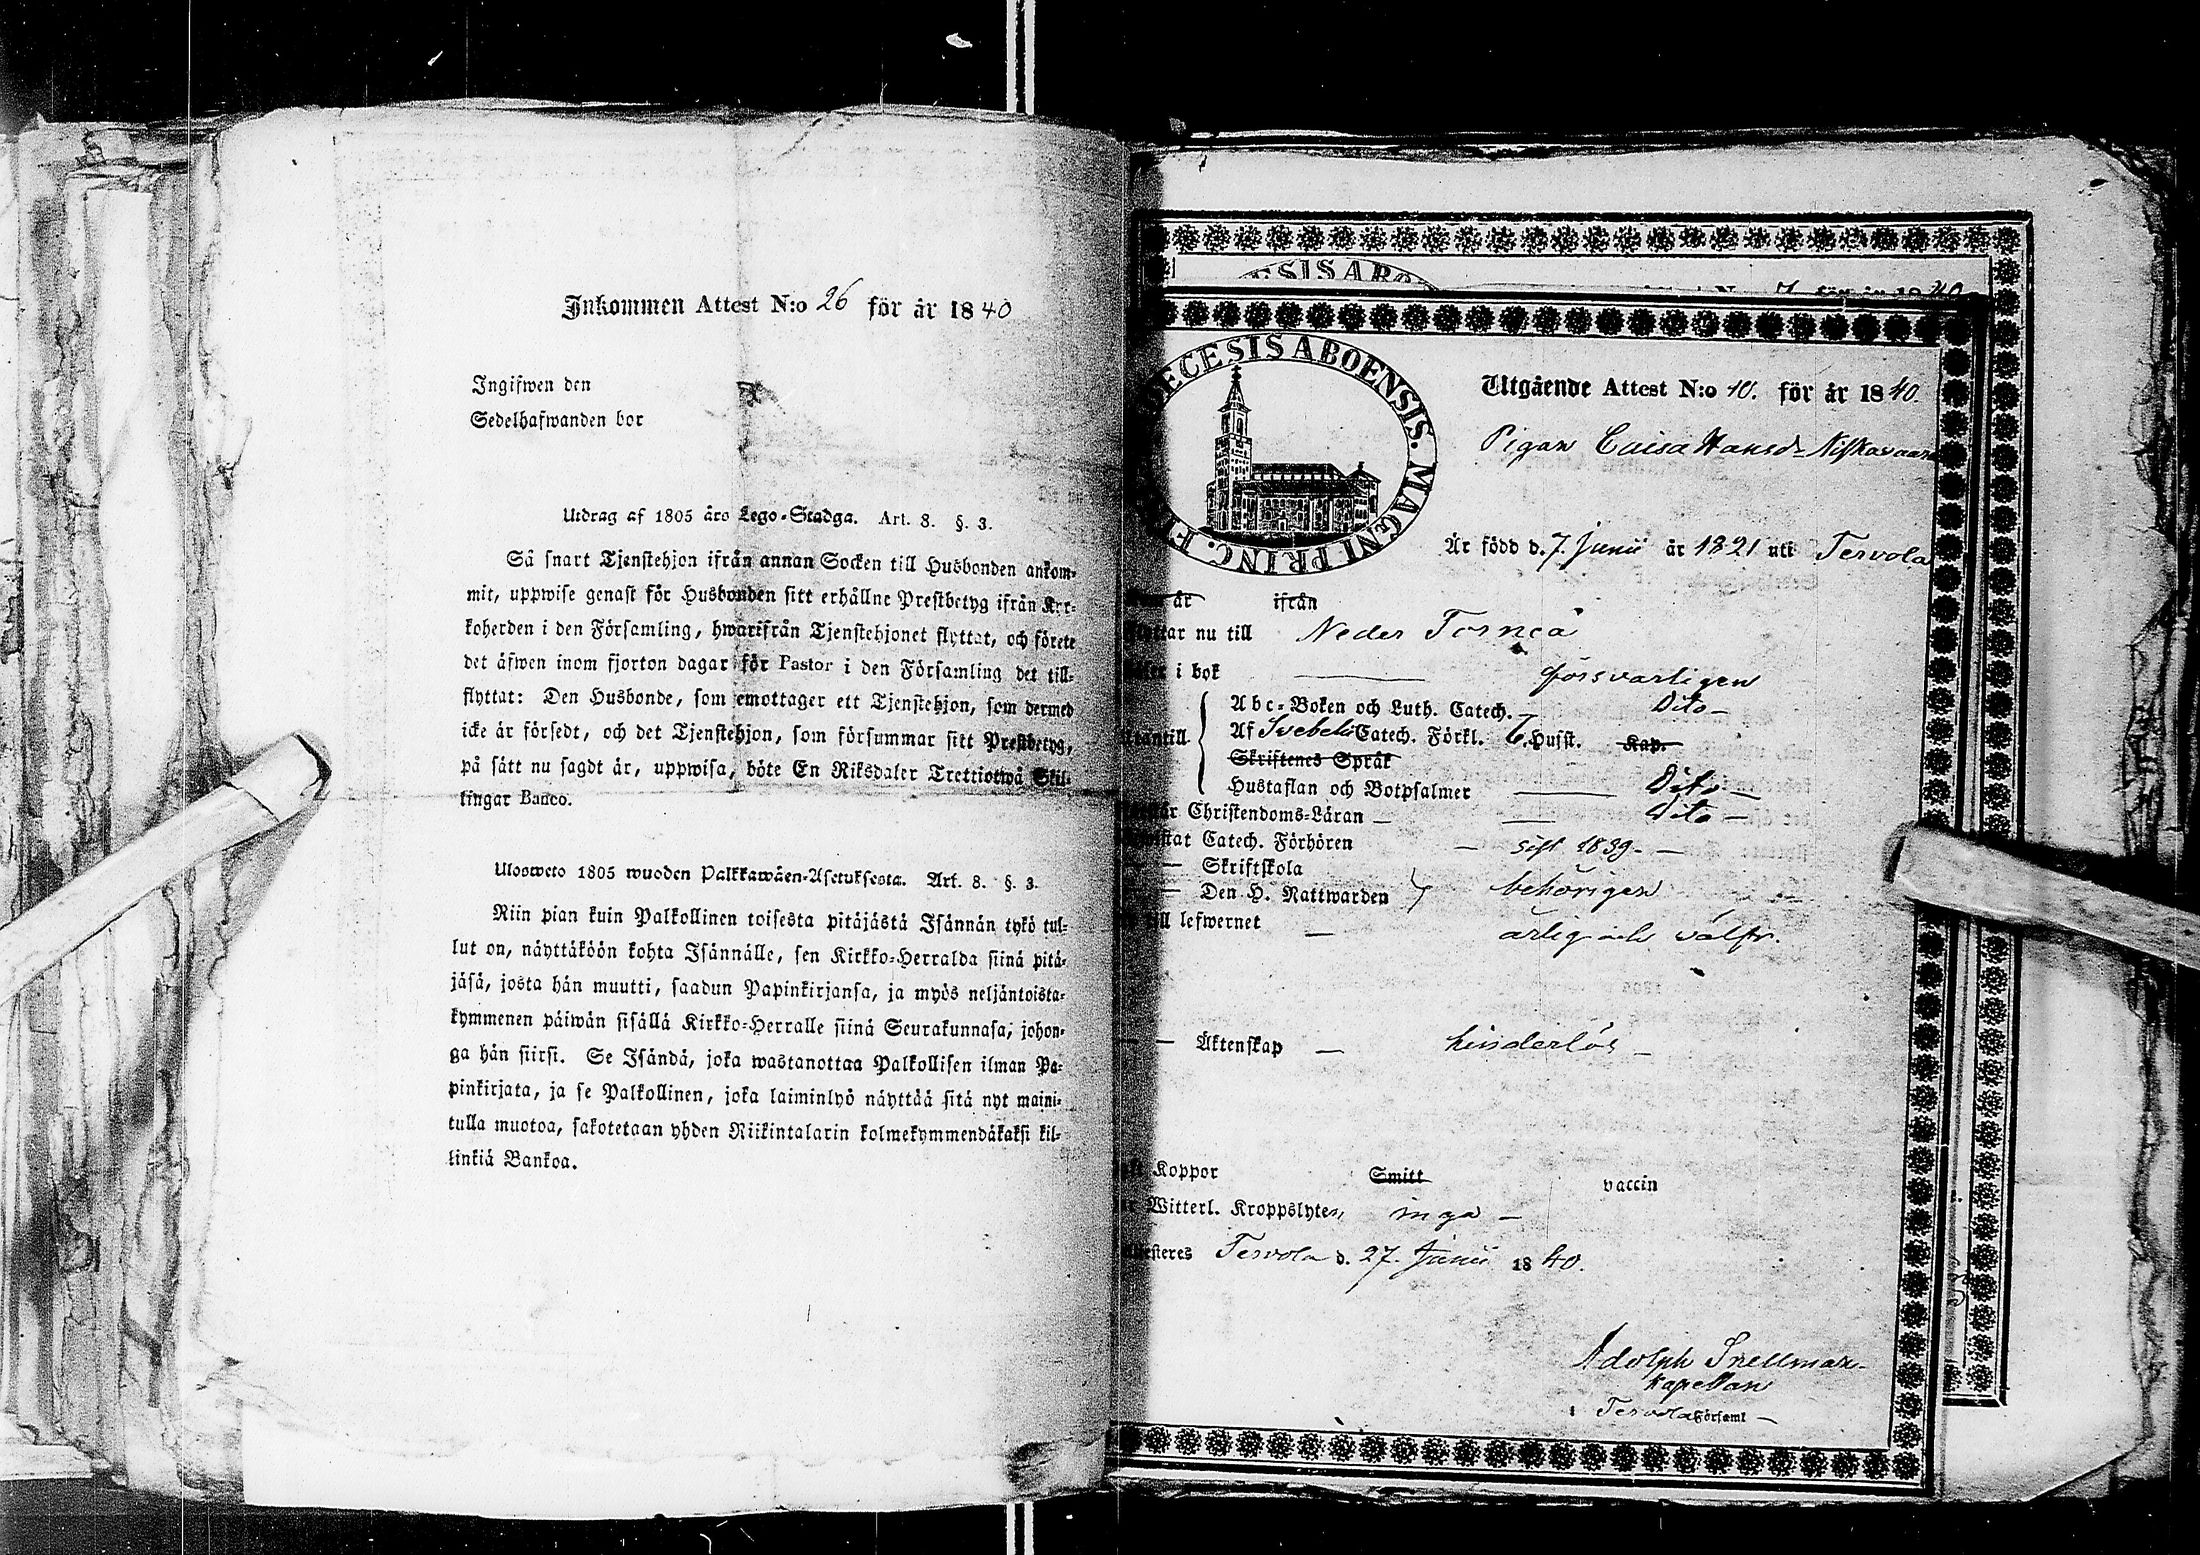 Inkommen Attest N:o 26 för år 1840
Ingifwen den
Sedelhafwanden bor
Utdrag af 1805 års Lego-Stadga. Art. 8. §. 3.
Så snart Tjenstehjon ifrån annan Socken till Husbonden ankom-
mit, uppwise genast för Husbonden sitt erhållne Prestbetyg ifrån Kyr-
koherden i den Församling, hwarifrån Tjenstehjonet flyttat, och förete
det äfwen inom fjorton dagar för Pastor i den Församling det till-
flyttat: Den Husbonde, som emottager ett Tjenstehjon, som dermed
icke är försedt, och det Tjenstehjon, som försummar sitt Prestbetyg,
på sätt nu sagdt är, uppwisa, böte En Riksdaler Trettiotwå Skil-
lingar Banco.
Ulosweto 1805 wuoden Palkkawäen-Asetuksesta. Art. 8. §. 3.
Niin pian kuin Palkollinen toisesta pitäjästä Isännän tykö tul-
lut on, näyttäköön kohta Isännälle, sen Kirkko-Herralda siinä pitä-
jäsä, josta hän muutti, saadun Papinkirjansa, ja myös neljäntoista-
kymmenen päiwän sisällä Kirkko-Herralle siinä Seurakunnasa, johon-
ga hän siirsi. Se Isändä, joka wastanottaa Palkollisen ilman Pa-
pinkirjata, ja se Palkollinen, joka laiminlyö näyttää sitä nyt maini-
tulla muotoa, sakotetaan yhden Riikintalarin kolmekymmendäkaksi kil-
linkiä Bankoa.
ECESIS ABOENSIS. MAGNI PRINC. F
Utgående Attest N:o 10. för år 1840.
Pigan Caisa Hansd. Niskavaara
Är född d. 7. Junii år 1821 uti Tervola
år ifrån
nu till Neder Torneå
i bok försvarligen
Abc-Boken och Luth. Catech. Dito
Af Svebeli Catech. Förkl. Husst. Kap.
Skriftenes Språk
Hustaflan och Botpsalmer Dito
Christendoms-Läran Dito
Catech. Förhören sist 1839
Skriftskola
Den H. Nattwarden behörigen
till lefwernet ärlig och välfr.
Äktenskap hinderlös
Koppor Smitt vaccin
Witterl. Kroppslyten, inga
Tervola d. 27. Junii 1840.
Adolph Snellman
Kapellan
i Tervola Församl